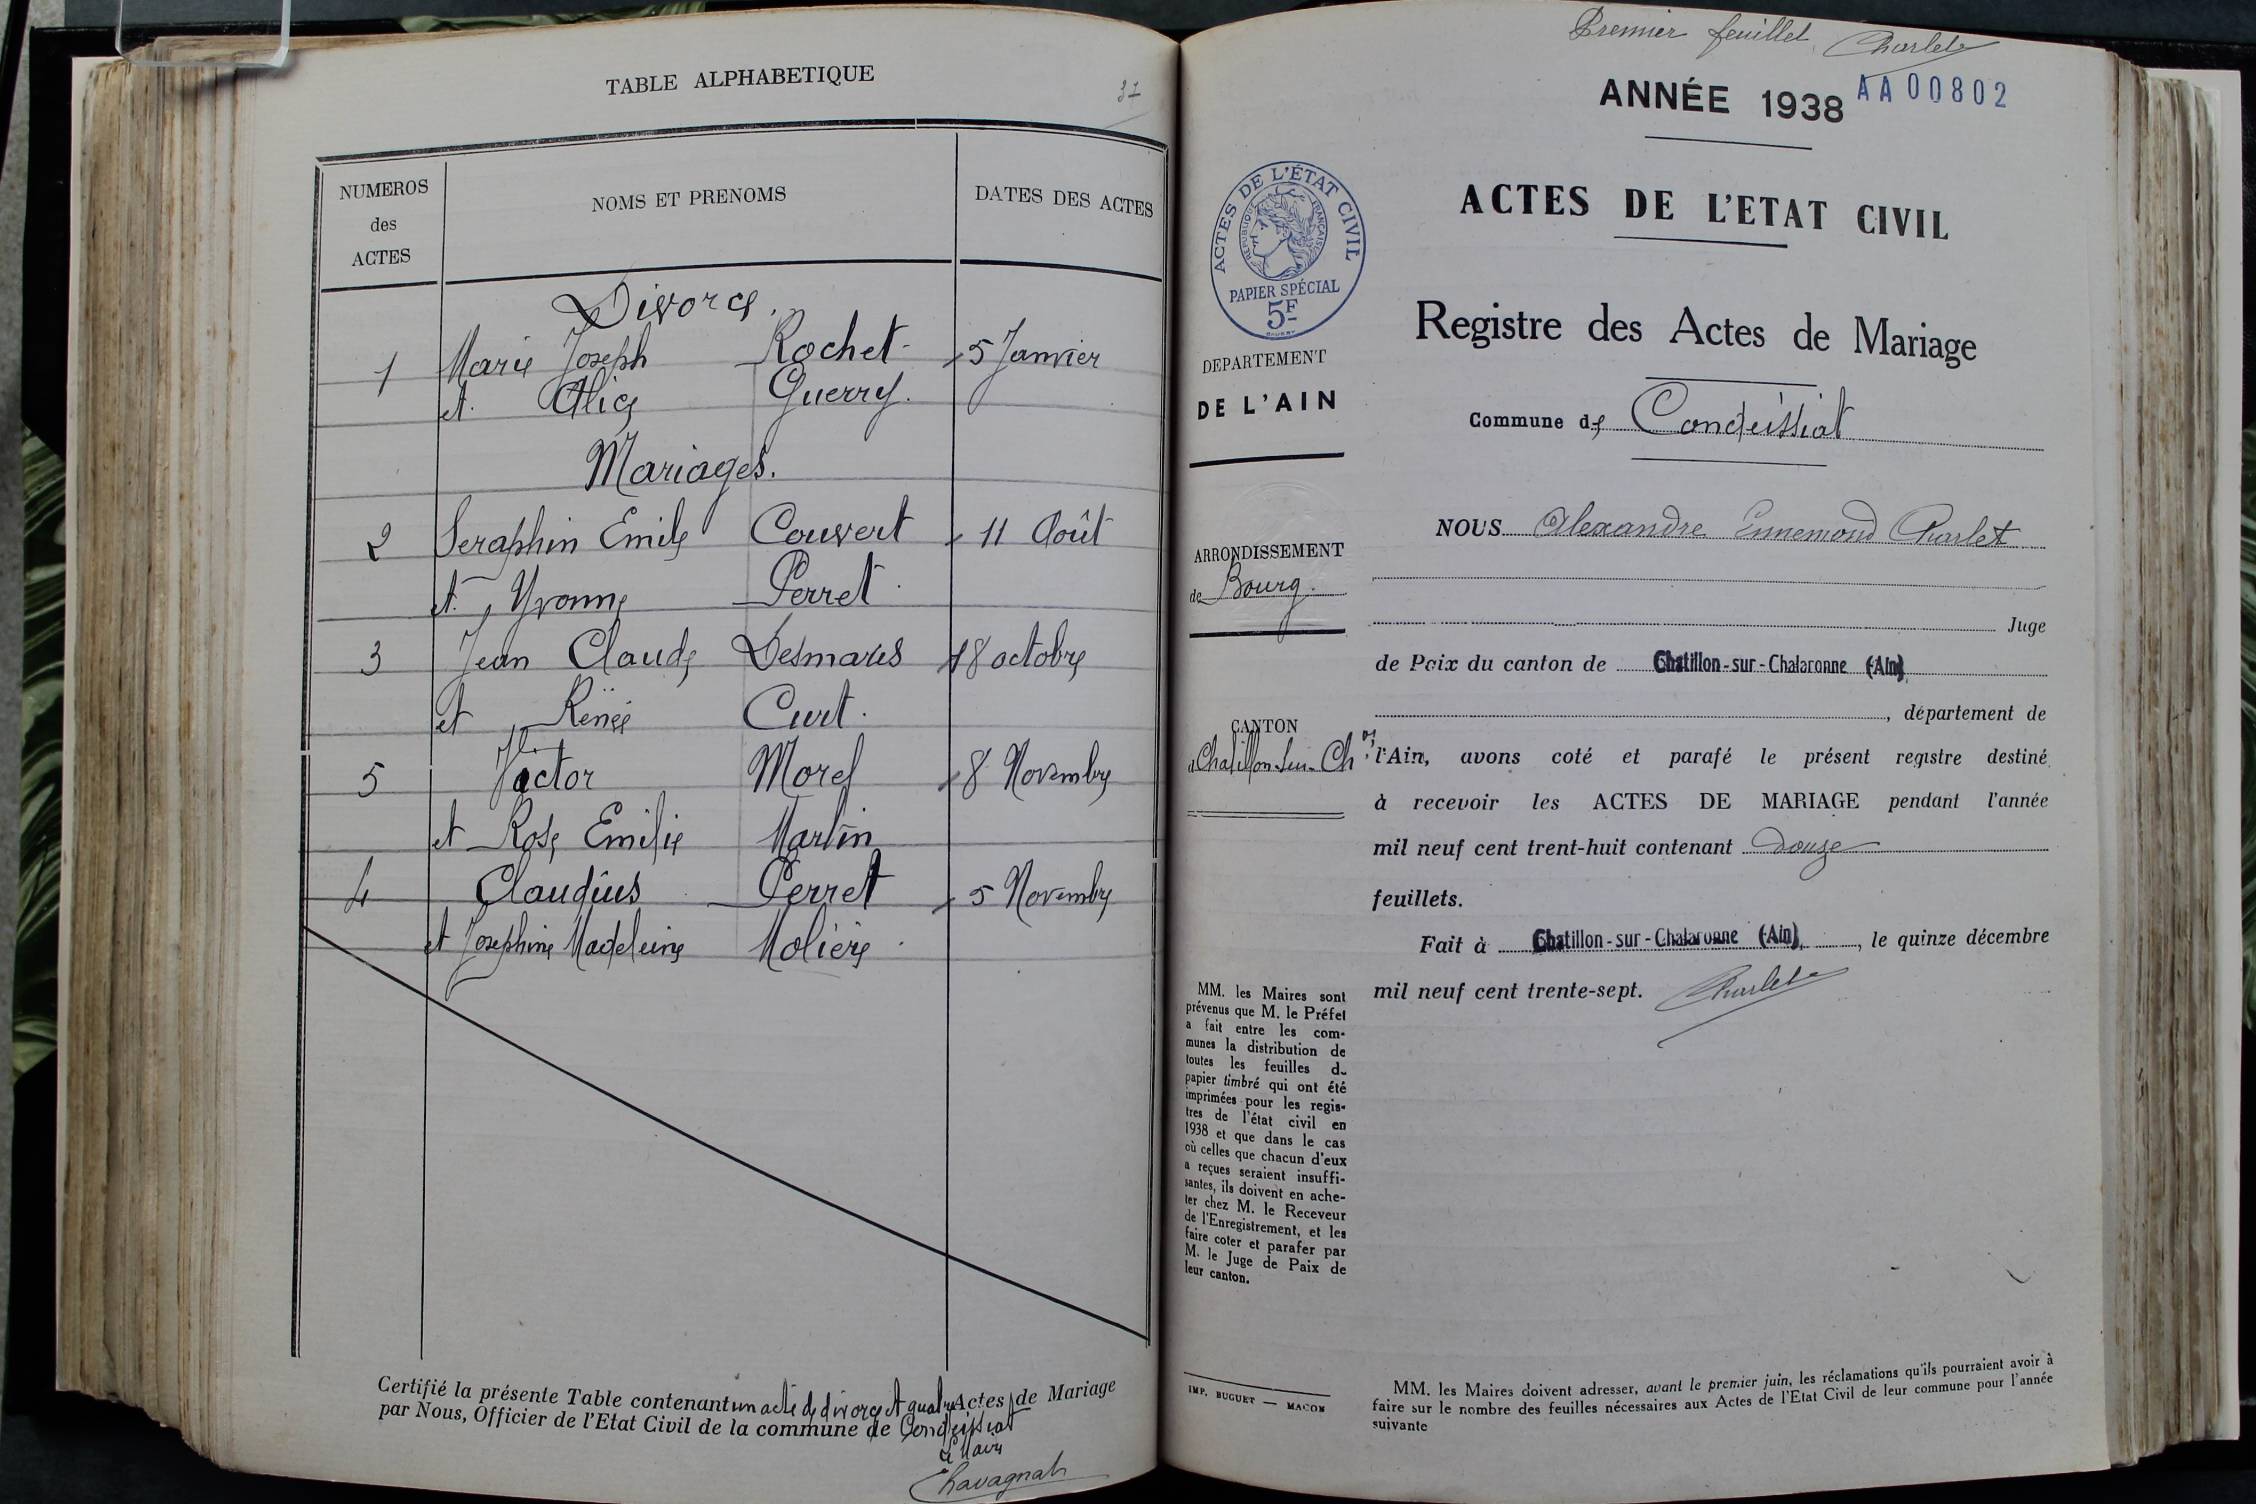 TABLE ALPHABETIQUE
31
NUMEROS des ACTES
NOMS ET PRENOMS
DATES DES ACTES
Divorce.
1 Marie Joseph Rochet 5 Janvier
et Alice Guerry.
Mariages.
2 Seraphin Emile Couvert 11 Août
et Yvonne Perret.
3 Jean Claude Desmaris 18 octobre
et Renée Curt.
5 Victor Morel 8 Novembre
et Rose Emilie Martin
4 Claudius Perret 5 Novembre
et Josephine Madeleine Molière.
Certifié la présente Table contenant un acte de divorce et quatre Actes de Mariage
par Nous, Officier de l'Etat Civil de la commune de Condeissiat
Le Maire
Chavagnat
Premier feuillet Charlet
ANNÉE 1938 AA00802
ACTES DE L'ETAT CIVIL
ACTES DE L'ÉTAT CIVIL
RÉPUBLIQUE FRANÇAISE
PAPIER SPÉCIAL
5F
Registre des Actes de Mariage
DEPARTEMENT
DE L'AIN
Commune de Condeissiat
NOUS Alexandre Ennemond Charlet
ARRONDISSEMENT
de Bourg.
Juge
de Paix du canton de Chatillon-sur-Chalaronne (Ain)
, département de
CANTON
Chatillon-sur-Ch
l'Ain, avons coté et parafé le présent registre destiné
à recevoir les ACTES DE MARIAGE pendant l'année
mil neuf cent trent-huit contenant douze
feuillets.
Fait à Chatillon-sur-Chalaronne (Ain), le quinze décembre
mil neuf cent trente-sept. Charlet
MM. les Maires sont
prévenus que M. le Préfet
a fait entre les com-
munes la distribution de
toutes les feuilles de
papier timbré qui ont été
imprimées pour les regis-
tres de l'état civil en
1938 et que dans le cas
où celles que chacun d'eux
a reçues seraient insuffi-
santes, ils doivent en ache-
ter chez M. le Receveur
de l'Enregistrement, et les
faire coter et parafer par
M. le Juge de Paix de
leur canton.
IMP. BUGUET — MACON
MM. les Maires doivent adresser, avant le premier juin, les réclamations qu'ils pourraient avoir à
faire sur le nombre des feuilles nécessaires aux Actes de l'Etat Civil de leur commune pour l'année
suivante